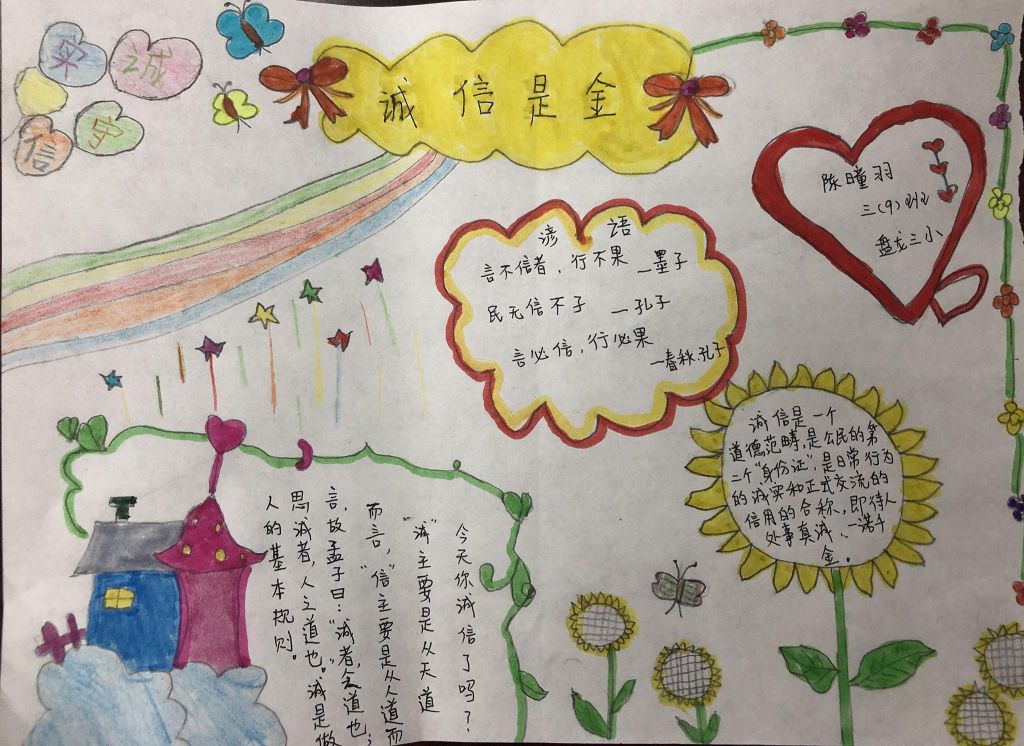 诚信是金
诚
守
信
陈瞳羽
三(9)班
盘龙三小
谚语
言不信者，行不果 —墨子
民无信不子 —孔子
言必信，行必果
—春秋孔子
诚信是一个
道德范畴，是公民的第
二个“身份证”，是日常行为
的诚实和正式交流的
信用的合称、即待人
处事真诚、一诺千
金。
今天你诚信了吗？
“诚”主要是从天道
而言，“信”主要是从人道而
言，故孟子曰：“诚者，天之道也；
思诚者，人之道也。”诚是做
人的基本规则。